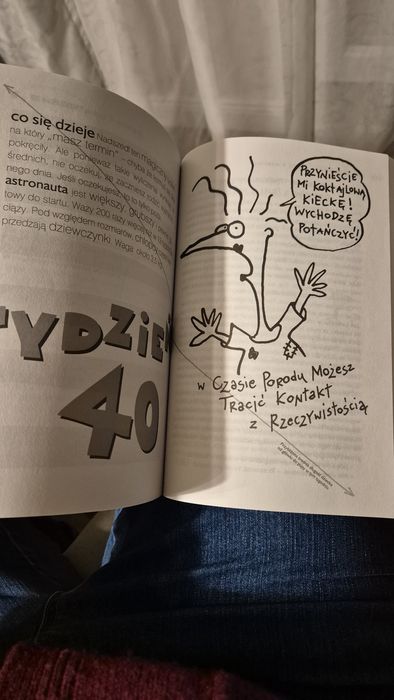 co się dzieje Nadszedł ten magiczny
na który „masz termin" – chyba że
pokręciły. Ale ponieważ takie wyliczenia
średnich, nie oczekuj, że zaczniesz rodzić
nego dnia. Jeśli oczekujesz, to
astronauta jest większy, grubszy i
towy do startu. Waży 200 razy więcej niż w
ciąży. Pod względem rozmiarów, chłopcy
przedzają dziewczynki. Waga około
TYDZIEŃ
40
PRZYNIEŚCIE
MI KOKTAJLOWĄ
KIECKĘ!
WYCHODZĘ
POTAŃCZYĆ!
w CZASIE PORODU MOŻESZ
TRACIĆ KONTAKT
z RZECZYWISTOŚCIĄ